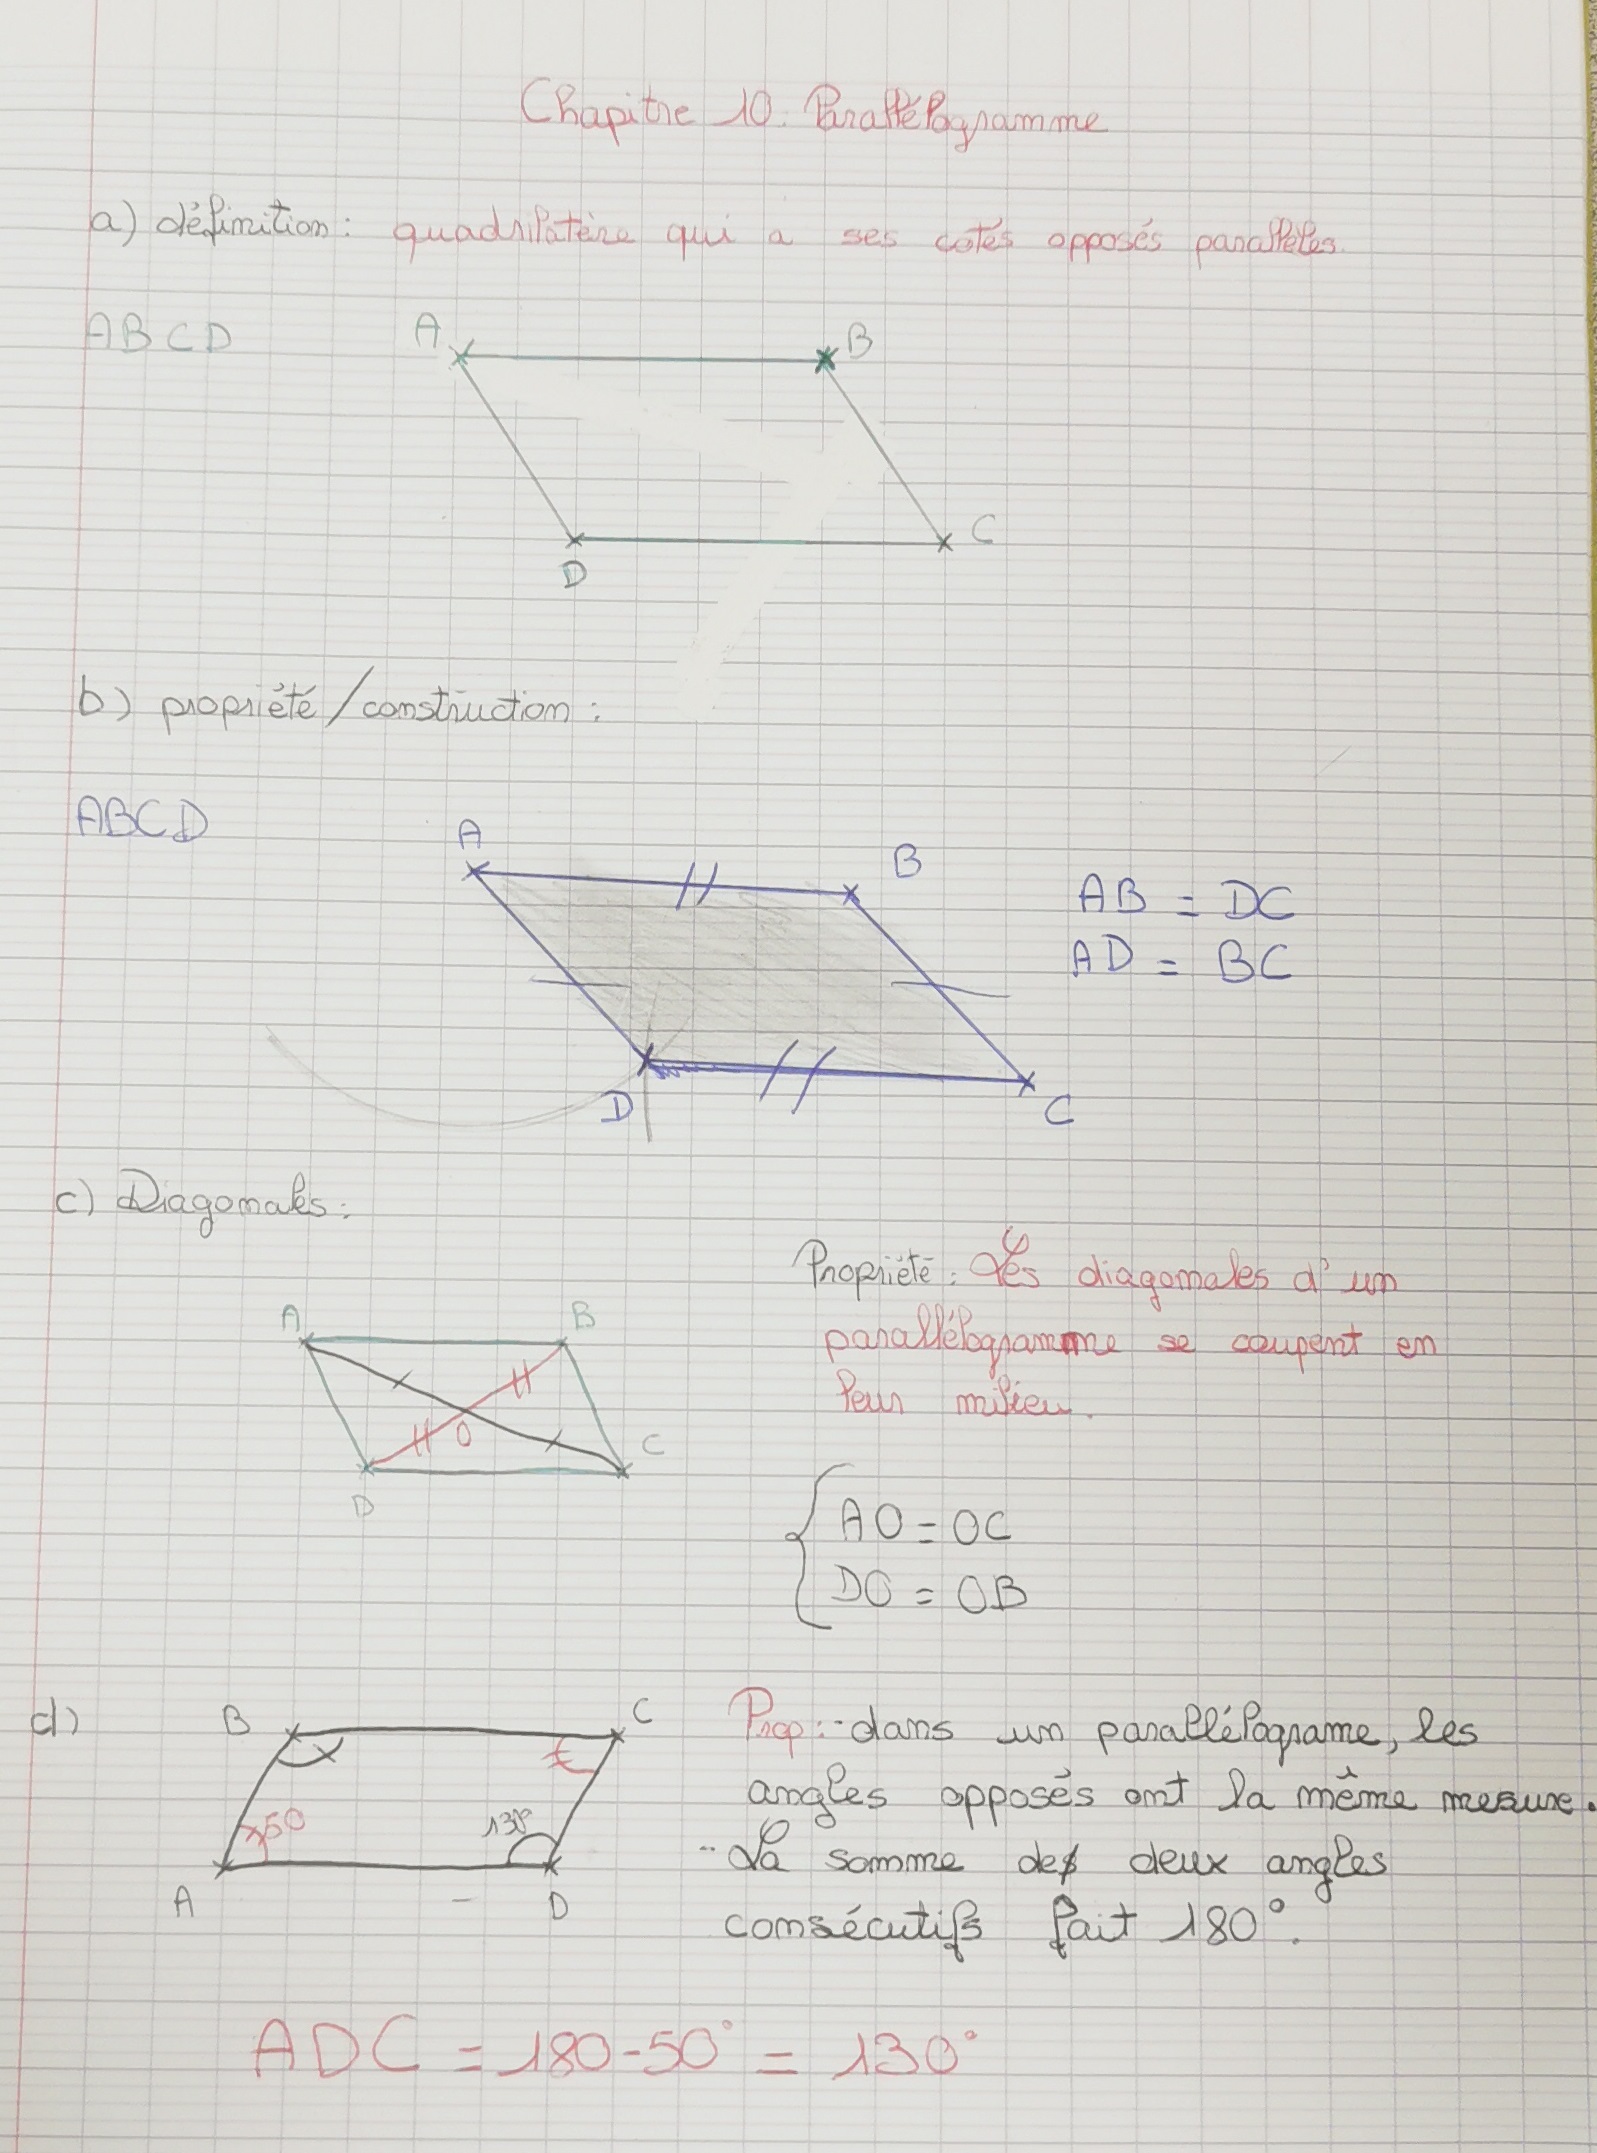 Chapitre 10: Parallélogramme
a) définition: quadrilatère qui a ses cotés opposés parallèles.
ABCD
A B
C
D
b) propriété/construction:
ABCD
A
B
AB = DC
AD = BC
D
C
c) Diagonales:
Propriété: Les diagonales d'un
parallélogramme se coupent en
leur milieu.
A B
O
C
D
AO = OC
DO = OB
d)
B C
50 130
A D
Prop: - dans un parallélograme, les
angles opposés ont la même mesure.
- La somme de deux angles
consécutifs fait 180°.
ADC = 180-50° = 130°